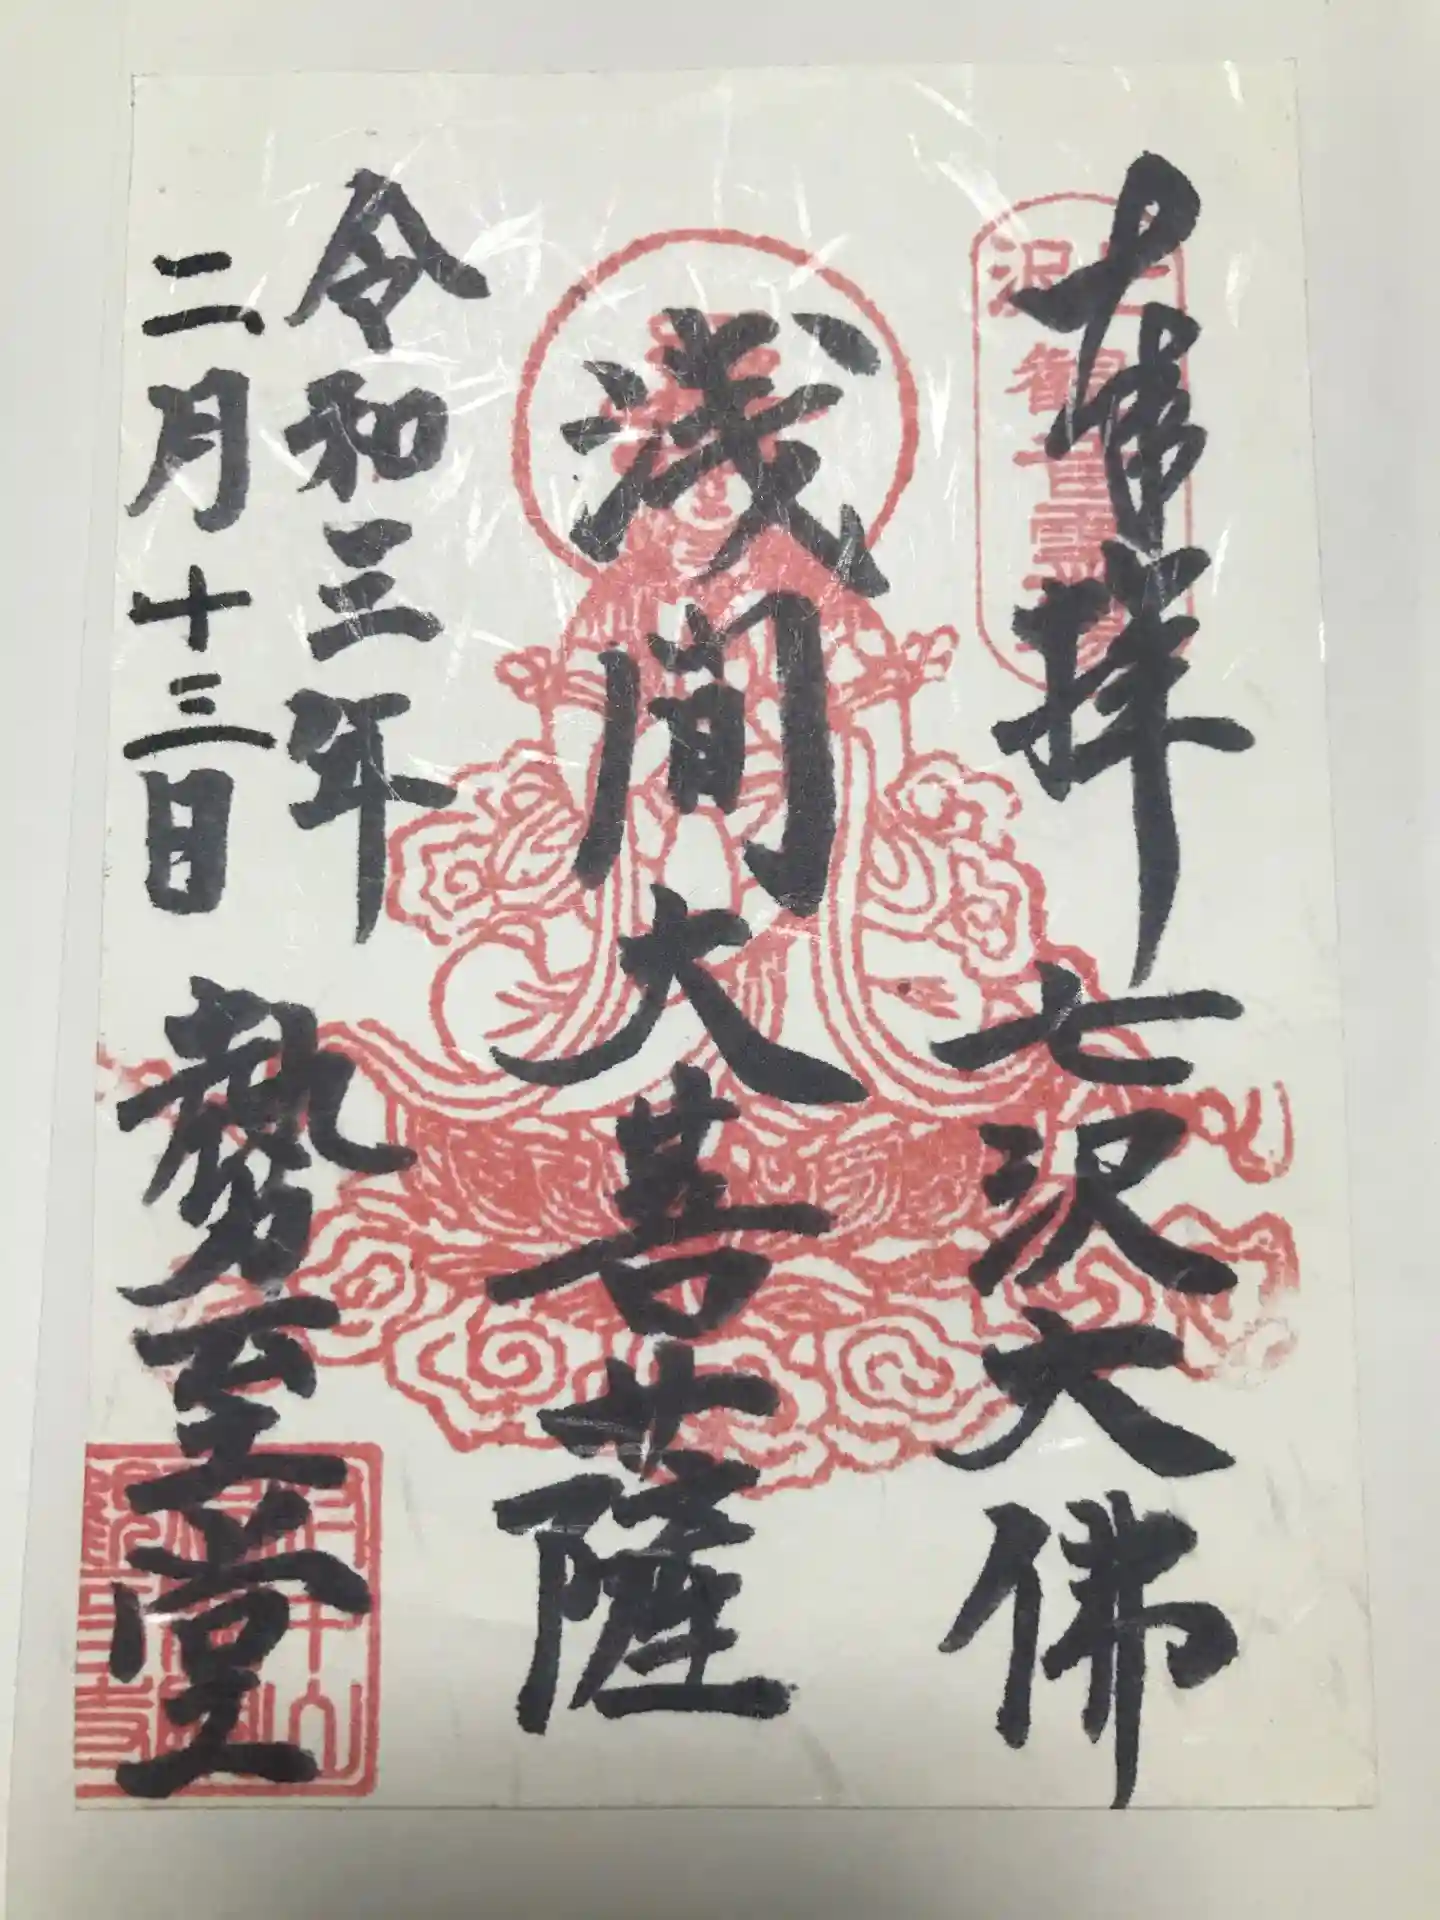 奉拝 七沢大佛
浅間大菩薩
令和三年
二月十三日 勢至堂